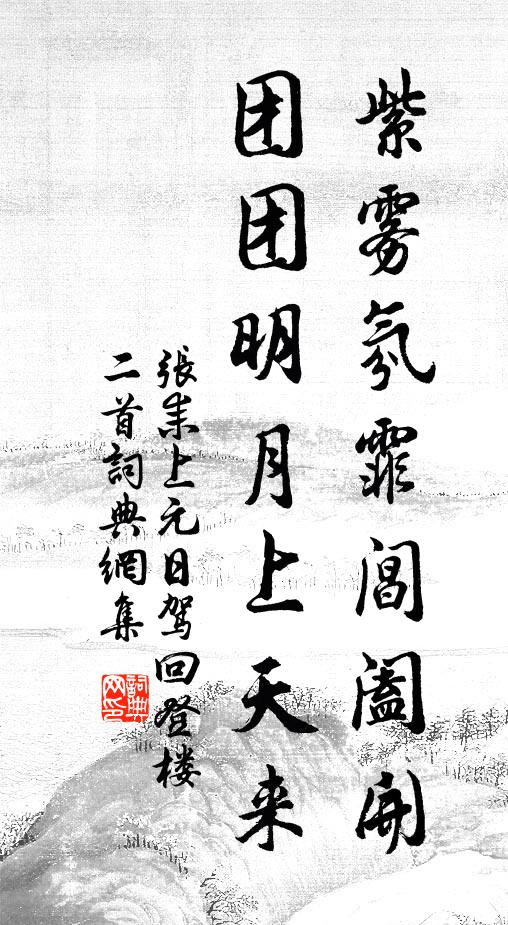 紫雾氛霏阊阖开
团团明月上天来
張耒上元日驾回登楼
二首詞典網集
詞典
网印